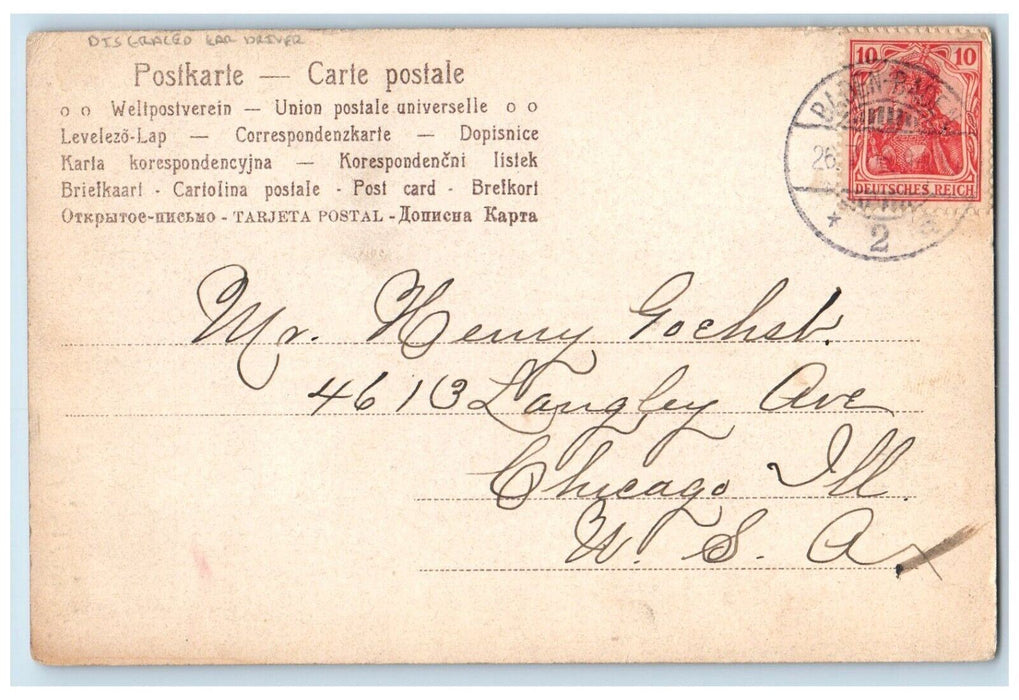 DISGRACED CAR DRIVER
Postkarte — Carte postale
o o Weltpostverein — Union postale universelle o o
Levelező-Lap — Correspondenzkarte — Dopisnice
Karta korespondencyjna — Korespondenčni listek
Briefkaart - Cartolina postale - Post card - Brefkort
Открытое-письмо - TARJETA POSTAL - Дописна Карта
10 10
DEUTSCHES REICH
BADEN-BADEN
26.
* 2
Mr. Henry Goehst.
4613 Langley Ave
Chicago Ill.
U. S. A